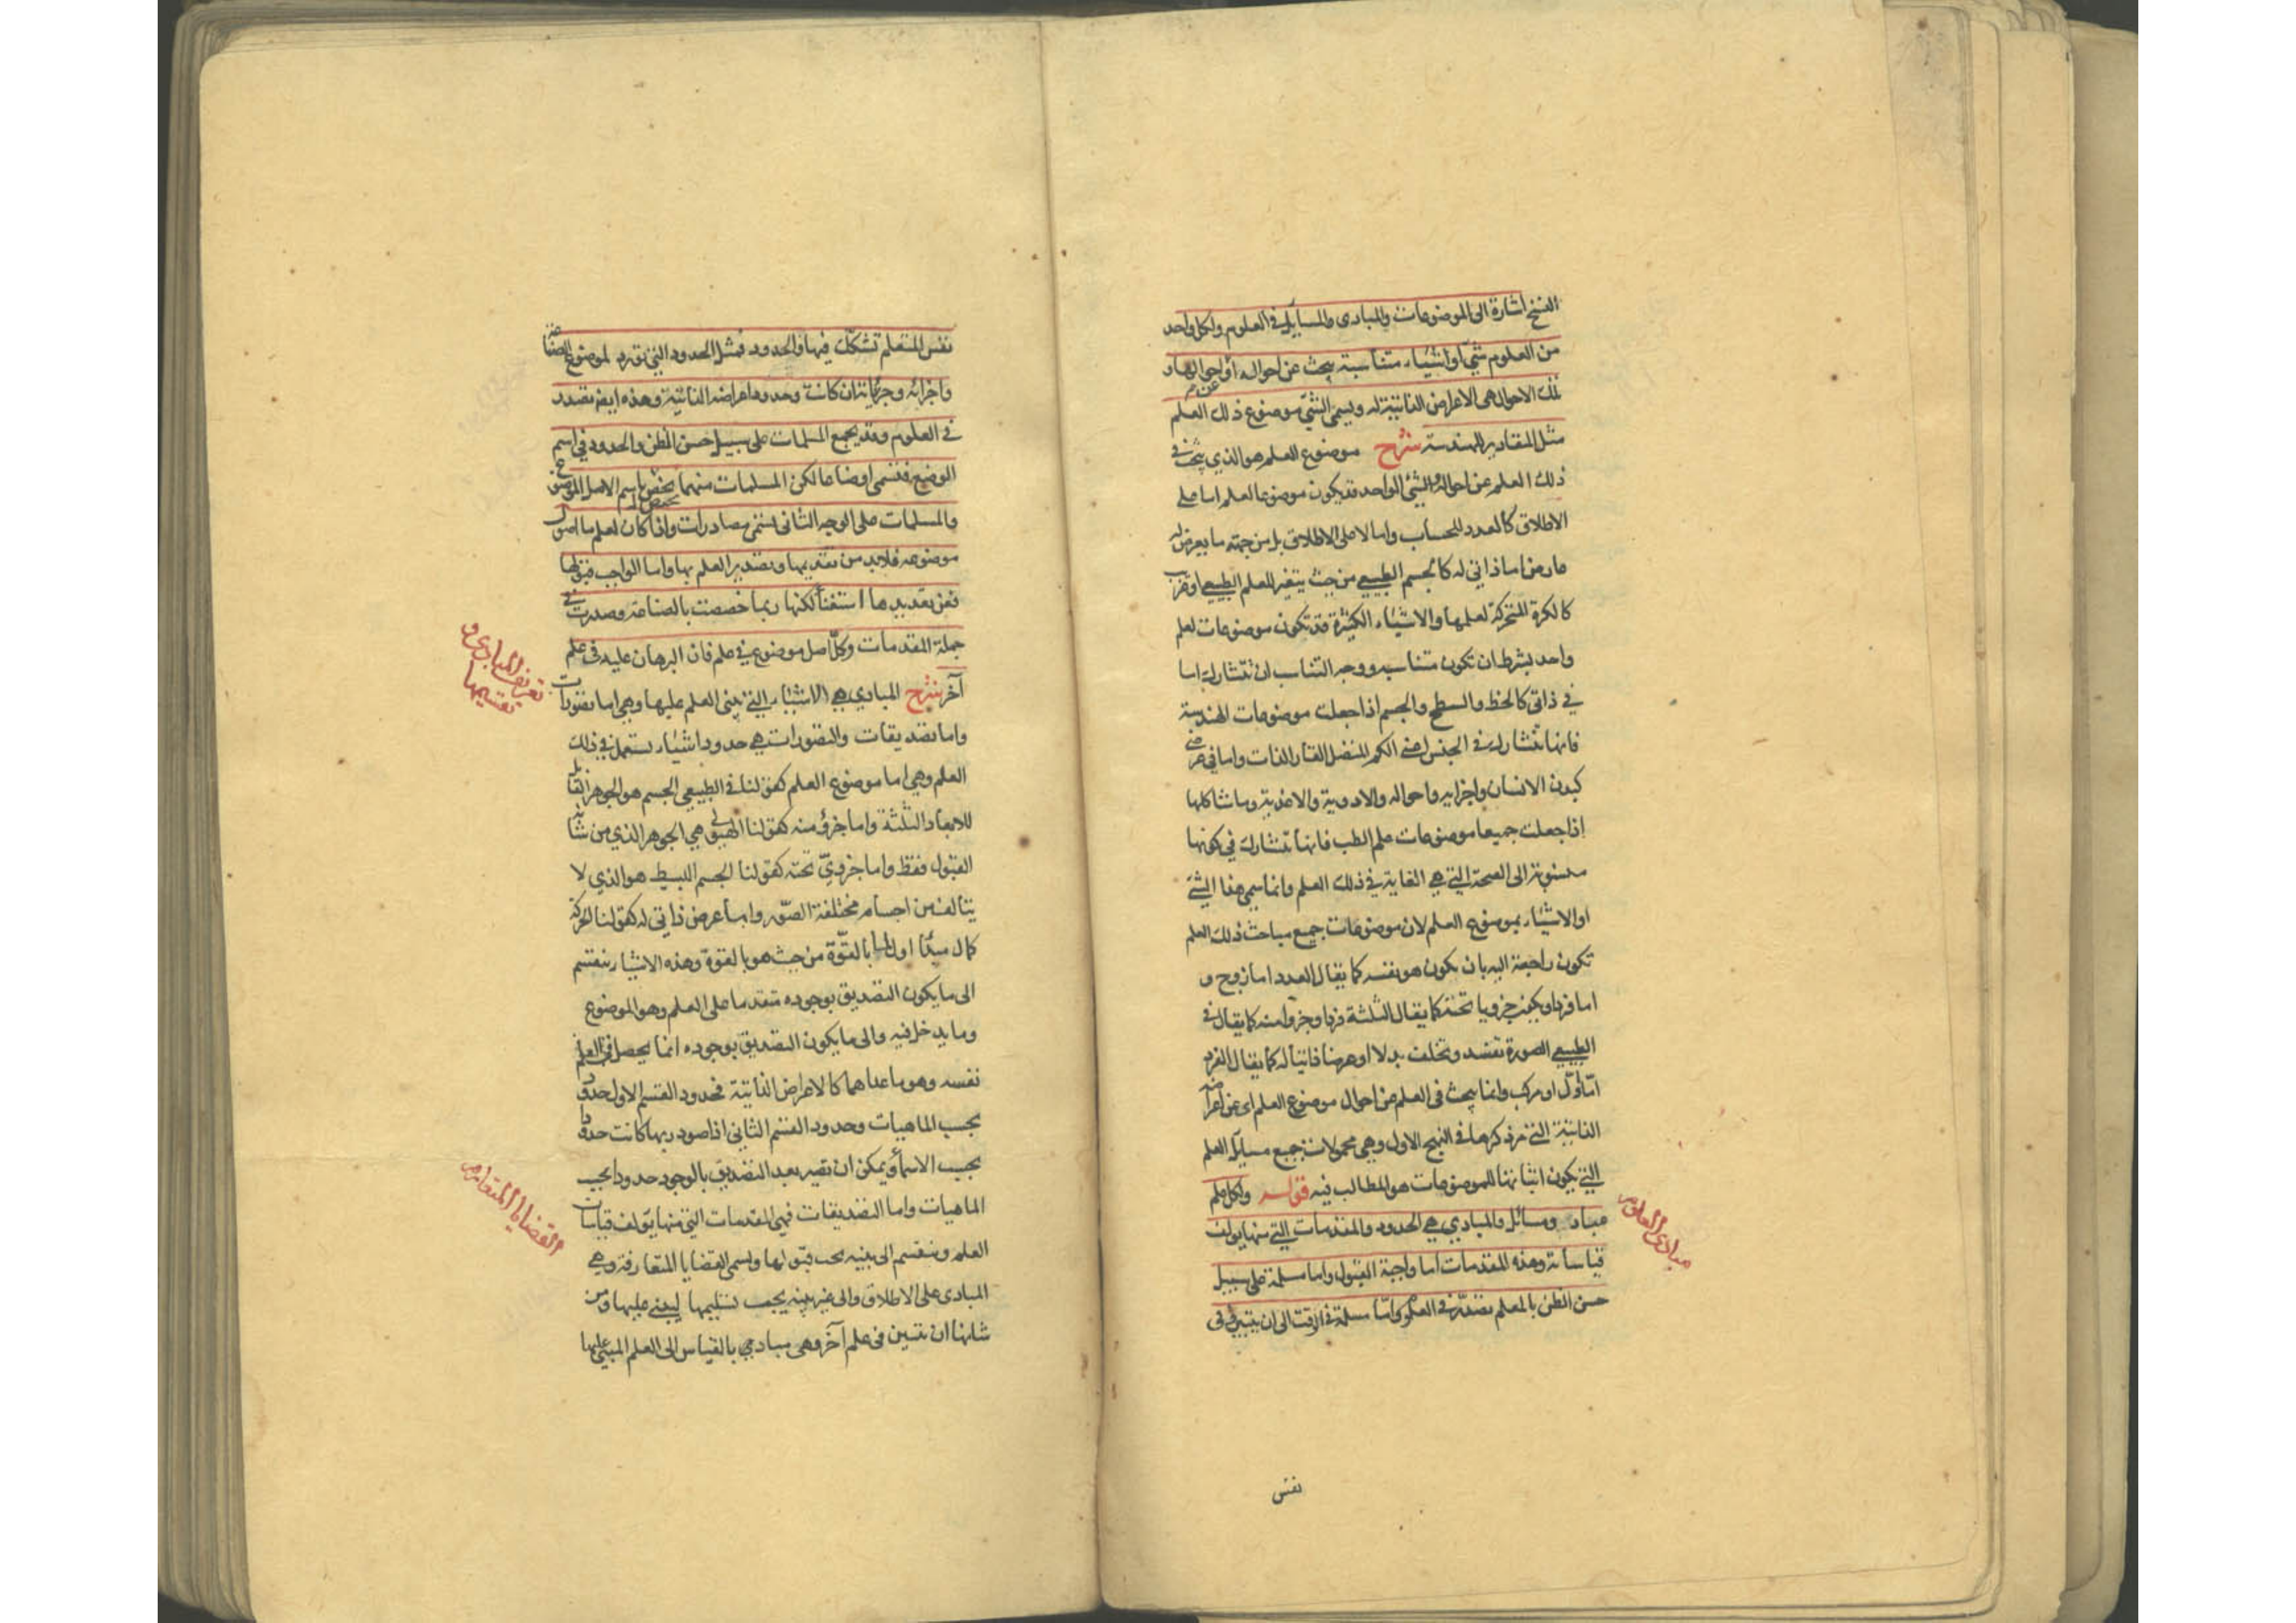 النسخ اشارة الى الموضوعات والمبادى والمسايل في العلوم ولكل واحد
من العلوم شئ او اشياء متناسبة يبحث عن احواله او احوالها و
تلك الاحوال هى الاعراض الذاتية له ويسمى الشئ موضوع ذلك العلم
مثل المقادير للهندسة شرح موضوع العلم هو الذي يبحث في
ذلك العلم عن احواله والشئ الواحد قد يكون موضوعا لعلم اما على
الاطلاق كالعدد للحساب واما لا على الاطلاق بل من جهة ما يعرض له
عارض اما ذاتي له كالجسم الطبيعي من حيث يتغير للعلم الطبيعي او غريب
كالكرة المتحركة لعلمها والاشياء الكثيرة قد تكون موضوعات لعلم
واحد بشرط ان تكون متناسبة ووجه التناسب ان تتشارك اما
في ذاتي كالخط والسطح والجسم اذا جعلت موضوعات الهندسة
فانها تتشارك في الجنس اعني الكم المتصل القار الذات واما في عرضي
كبدن الانسان واجزايه واحواله والادوية والاغذية وما شاكلها
اذا جعلت جميعا موضوعات علم الطب فانها تتشارك في كونها
منسوبة الى الصحة التي هي الغاية في ذلك العلم وانما سمى هذا الشئ
او الاشياء بموضوع العلم لان موضوعات جميع مباحث ذلك العلم
تكون راجعة اليه بان يكون هو نفسه كما يقال العدد اما زوج و
اما فرد او يكون جزويا تحته كما يقال الثلثة فرد او جزوا منه كما يقال في
الطبيعي الصورة تفسد وتخلف بدلا او عرضا ذاتيا له كما يقال الفرد
اما اول او مركب وانما يبحث في العلم عن احوال موضوع العلم اى عن اعراضه
الذاتية التي مر ذكرها في النهج الاول وهي محمولات جميع مسايل العلم
التي يكون اثباتها للموضوعات هو المطالب فيه قوله ولكل علم
مباد ومسائل والمبادي هي الحدود والمقدمات التي منها يولف
قياساته وهذه المقدمات اما واجبة القبول واما مسلمة على سبيل
حسن الظن بالمعلم تصدر في العلوم واما مسلمة في الوقت الى ان يتبين وفي
مبادى العلوم
نفس
نفس المتعلم تشكك فيها واما الحدود فمثل الحدود التي تورد لموضوع الصناعة
واجزائه وجزئياته ان كانت وحدود اعراضه الذاتية وهذه ايضا تصدر
في العلوم وقد يجمع المسلمات على سبيل حسن الظن والحدود في اسم
الوضع فتسمى اوضاعا لكن المسلمات منهما يختص باسم الاصل الموضوع
والمسلمات على الوجه الثانى تسمى مصادرات واذا كان لعلم ما اصول
موضوعه فلا بد من تقديمها وتصدير العلم بها واما الواجب قبولها
فعن تعديدها استغناء لكنها ربما خصصت بالصناعة وصدرت في
جملة المقدمات وكل اصل موضوع في علم فان البرهان عليه في علم
آخر شرح المبادي هي الاشياء التي يبنى العلم عليها وهي اما تصورات
واما تصديقات والتصورات هي حدود اشياء تستعمل في ذلك
العلم وهي اما موضوع العلم كقولنا في الطبيعي الجسم هو الجوهر القابل
للابعاد الثلثة واما جزؤ منه كقولنا الهيولى هي الجوهر الذي من شانه
القبول فقط واما جزويّ تحته كقولنا الجسم البسيط هو الذي لا
يتالف من اجسام مختلفة الصور واما عرض ذاتي له كقولنا الحركة
كمال مبدأ اول لما بالقوة من حيث هو بالقوة وهذه الاشياء ينقسم
الى ما يكون التصديق بوجوده متقدما على العلم وهو الموضوع
وما يدخل فيه والى ما يكون التصديق بوجوده انما يحصل في العلم
نفسه وهو ما عداهما كالاعراض الذاتية فحدود القسم الاول حدود
بحسب الماهيات وحدود القسم الثاني اذا صودر بها كانت حدودا
بحسب الاسماء ويمكن ان تصير بعد التصديق بالوجود حدودا بحسب
الماهيات واما التصديقات فهي المقدمات التي منها يؤلف قياسات
العلم وينقسم الى بينه يجب قبولها ويسمى القضايا المتعارفة وهي
المبادى على الاطلاق والى غير بينه يجب تسليمها ليبنى عليها ومن
شانها ان تتبين في علم آخر وهى مبادي بالقياس الى العلم المبنى عليها
تعريف المبادى و
تقسيمها
القضايا المتعارفه